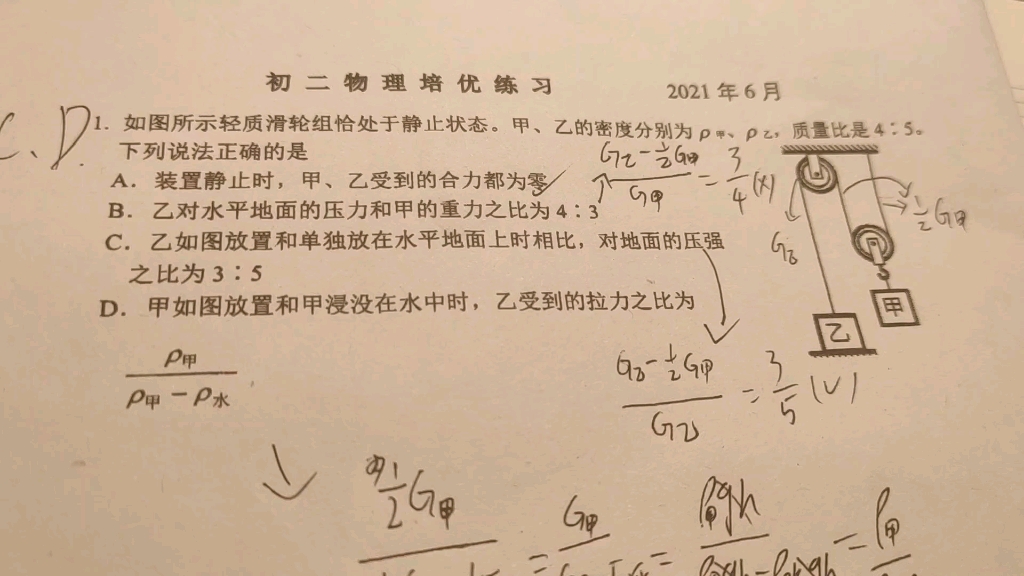 初二物理培优练习 2021年6月
C、D.
1. 如图所示轻质滑轮组恰处于静止状态。甲、乙的密度分别为ρ甲、ρ乙，质量比是4：5。
下列说法正确的是
A. 装置静止时，甲、乙受到的合力都为零 ✓
B. 乙对水平地面的压力和甲的重力之比为4：3
C. 乙如图放置和单独放在水平地面上时相比，对地面的压强
之比为3：5
D. 甲如图放置和甲浸没在水中时，乙受到的拉力之比为
ρ甲
ρ甲－ρ水
G乙-½G甲
G甲
= 3/4 (×)
G乙
½G甲
甲
乙
G乙-½G甲
G乙
= 3/5 (√)
½G甲
= G甲
= ρ甲gh
= ρ甲